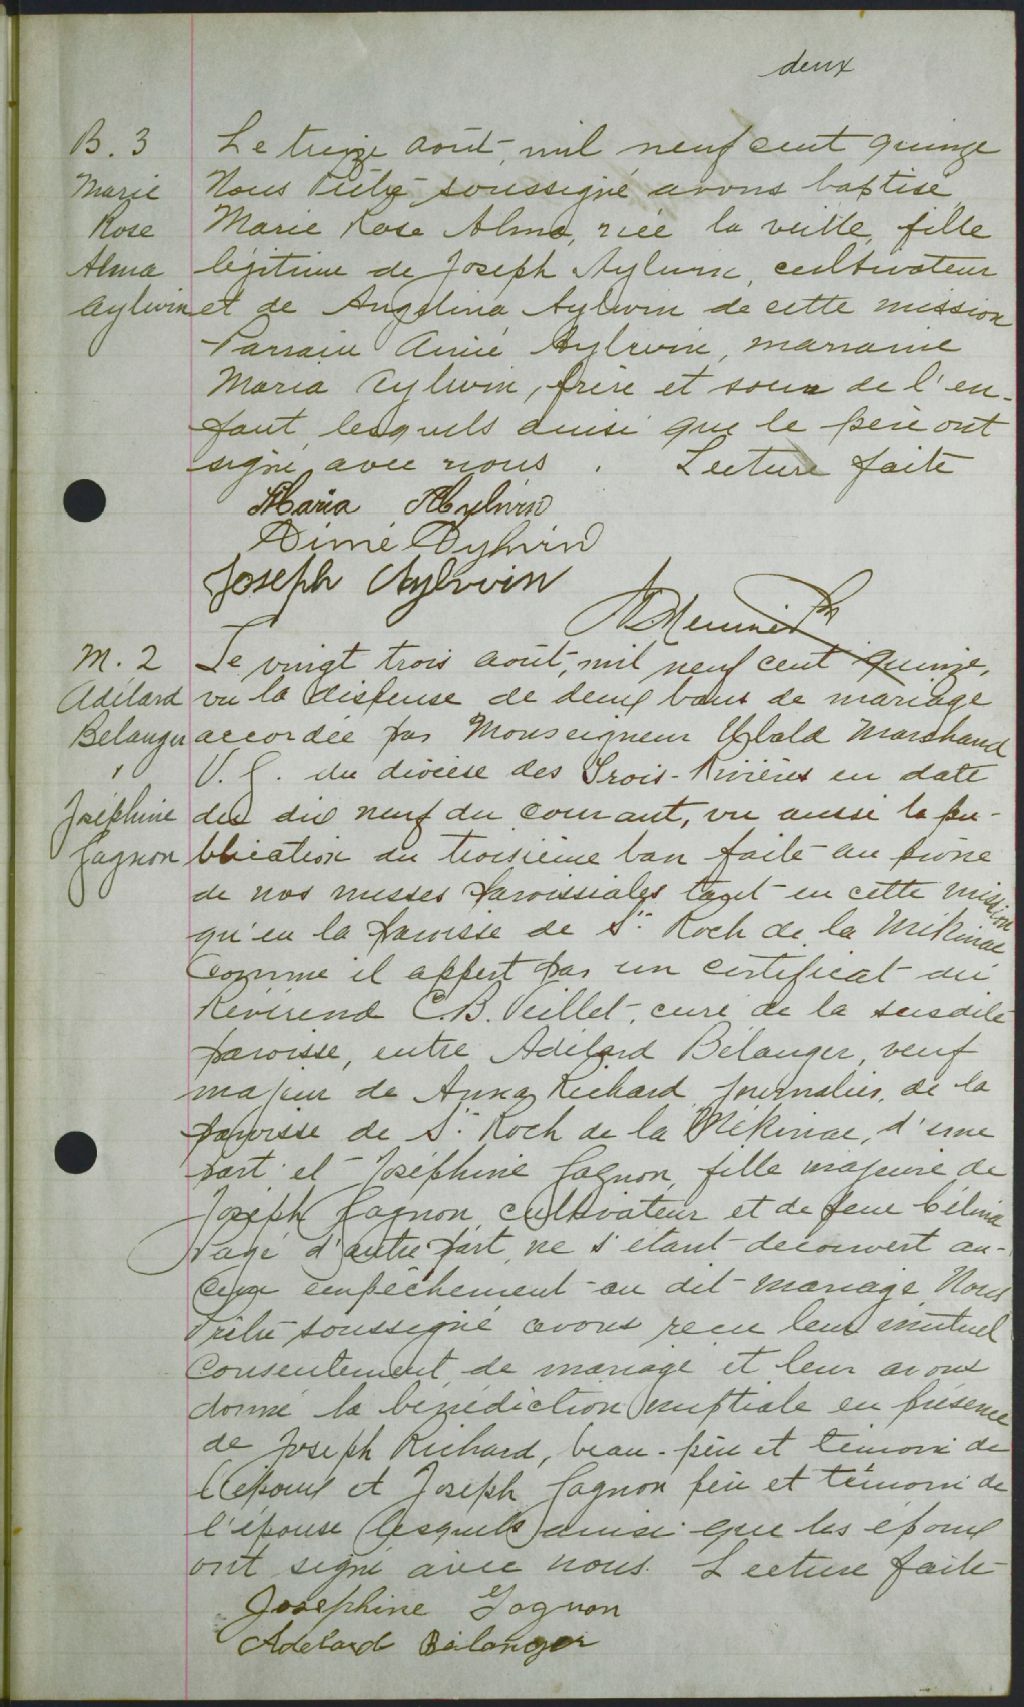 deux
B. 3
Marie
Rose
Alma
Aylwin
Le treize août, mil neuf cent quinze
Nous Prêtre soussigné avons baptisé
Marie Rose Alma, née la veille, fille
légitime de Joseph Aylwin, cultivateur
et de Angelina Aylwin de cette mission
Parrain Aimé Aylwin, marraine
Maria Aylwin, frère et soeur de l'en-
fant, lesquels ainsi que le père ont
signé avec nous. Lecture faite
Maria Aylwin
Aimé Aylwin
Joseph Aylwin
M. 2
Adélard
Bélanger
,
Joséphine
Gagnon
Le vingt trois août, mil neuf cent quinze,
vu la dispense de deux bans de mariage
accordée par Monseigneur Ubald Marchand
V. G. du diocèse des Trois-Rivières en date
du dix neuf du courant, vu aussi la pu-
blication du troisième ban faite au prône
de nos messes paroissiales tant en cette mission
qu'en la paroisse de St. Roch de la Mékinac
comme il appert par un certificat du
Révérend C.B. Veillet, curé de la susdite
paroisse, entre Adélard Bélanger, veuf
majeur de Anna Richard, journalier, de la
paroisse de St. Roch de la Mékinac, d'une
part; et Joséphine Gagnon, fille majeure de
Joseph Gagnon, cultivateur et de feue Célina
Pagé d'autre part, ne s'étant découvert au-
cun empêchement au dit mariage Nous
Prêtre soussigné avons reçu leur mutuel
consentement de mariage et leur avons
donné la bénédiction nuptiale en présence
de Joseph Richard, beau-père et témoin de
l'époux et Joseph Gagnon père et témoin de
l'épouse lesquels ainsi que les époux
ont signé avec nous. Lecture faite
Josephine Gagnon
Adelard Bélanger